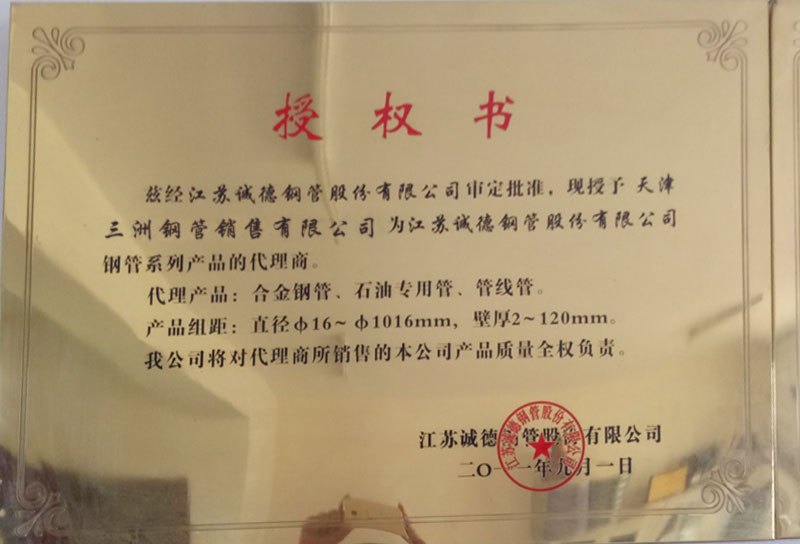 授权书
兹经江苏诚德钢管股份有限公司审定批准，现授予 天津
三洲钢管销售有限公司 为江苏诚德钢管股份有限公司
钢管系列产品的代理商。
代理产品：合金钢管、石油专用管、管线管。
产品组距：直径ф16～ф1016mm，壁厚2～120mm。
我公司将对代理商所销售的本公司产品质量全权负责。
江苏诚德钢管股份有限公司
二〇一一年九月一日
江苏诚德钢管股份有限公司